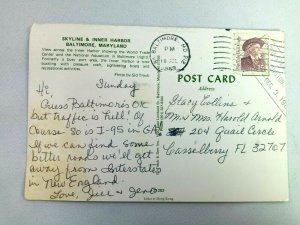 SKYLINE & INNER HARBOR
BALTIMORE, MARYLAND
View across the Inner Harbor showing the World Trade
Center and the National Aquarium in Baltimore (right).
Formerly a busy port area, the Inner Harbor is now
bustling with pleasure craft, sightseeing boats and
recreational activities.
Photo by Sid Tovik
BALTIMORE MD
PM
18 JUL
POST CARD
Sunday
Hi,
Guess Baltimore's OK
but traffic is hell! Of
Course so is I-95 in GA.
If we can find some
better roads we'll get
away from Interstates
in New England.
Love, Jill + Gene
Stacy Collins &
Mr + Mrs Harold Arnold
204 Quail Circle
Casselberry FL 32707